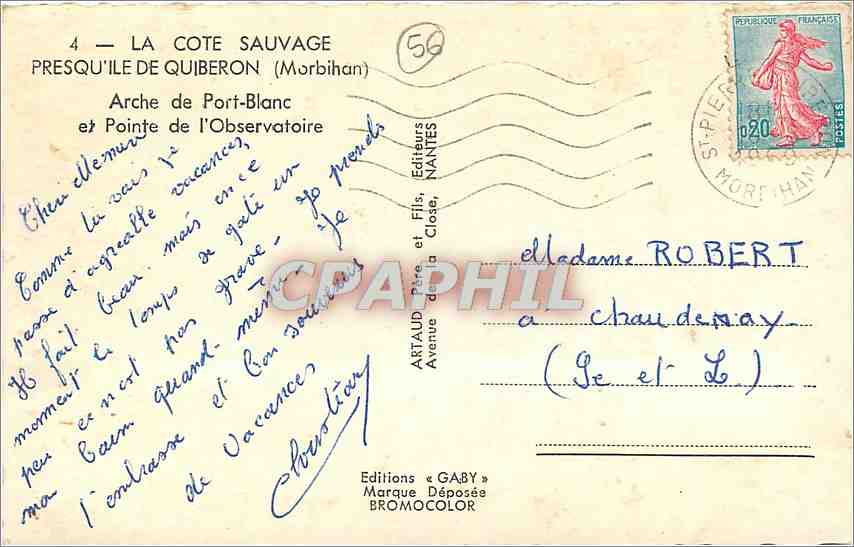 4 — LA COTE SAUVAGE
PRESQU'ILE DE QUIBERON (Morbihan)
Arche de Port-Blanc
et Pointe de l'Observatoire
56
REPUBLIQUE FRANÇAISE
0,20
POSTES
ST-PIERRE
MORBIHAN
Comme tu vois je
passe d'agréable vacances,
Il fait beau. mais en ce
moment le temps se gate un
peu ce n'est pas grave - Je prends
mon bain quand-même - Je
t'embrasse et bon souvenir
de vacances
Christian
ARTAUD Père et Fils, Editeurs
Avenue de la Close, NANTES
CPAPHIL
Madame ROBERT
à Chaudenay
(Se et L.)
Editions « GABY »
Marque Déposée
BROMOCOLOR